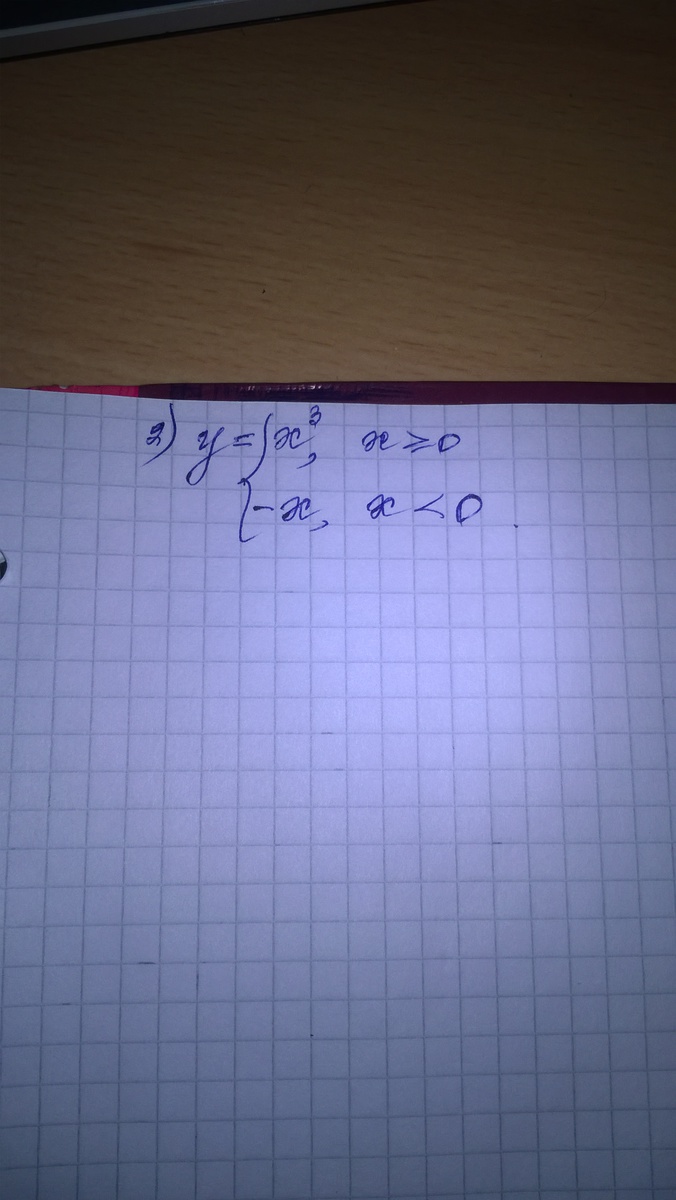 2) y = { x³, x ⩾ 0
-x, x < 0